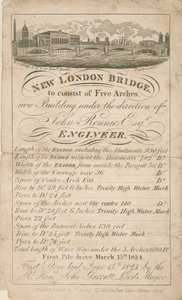 NEW LONDON BRIDGE,
to consist of Five Arches,
now Building under the direction of
John Rennie Esqr.
ENGINEER,
Length of the BRIDGE, including the Abutments
Length of the BRIDGE, without the Abutments, 782 Do.
Width of the BRIDGE, from outside the Parapet 56 Do.
Width of the Carriage way 36 Do.
Span of Centre Arch 150 Do.
Rise to Do. 29 feet 6 Inches Trinity High Water Mark
Piers to Do. 24 feet
Span of the Arches next the centre 140 Do.
Rise to Do. 6 Inches Trinity High Water Mark
Piers to Do. 22 feet
Span of the Abutment Arches 130 feet
Rise to Do. Trinity High Water Mark
Piers to Do. 74 feet
Total length of Water Way under the 5 Arches 690 Do.
First Pile drove March 15th 1824.
First Stone laid June 15th 1825 by the
Rt. Honble. John Garratt, Lord Mayor